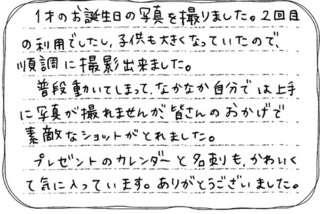 1才のお誕生日の写真を撮りました。2回目
の利用でしたし、子供も大きくなっていたので、
順調に撮影出来ました。
普段動いてしまって、なかなか自分では上手
に写真が撮れませんが、皆さんのおかげで
素敵なショットがとれました。
プレゼントのカレンダーと名刺も、かわいく
て気に入っています。ありがとうございました。